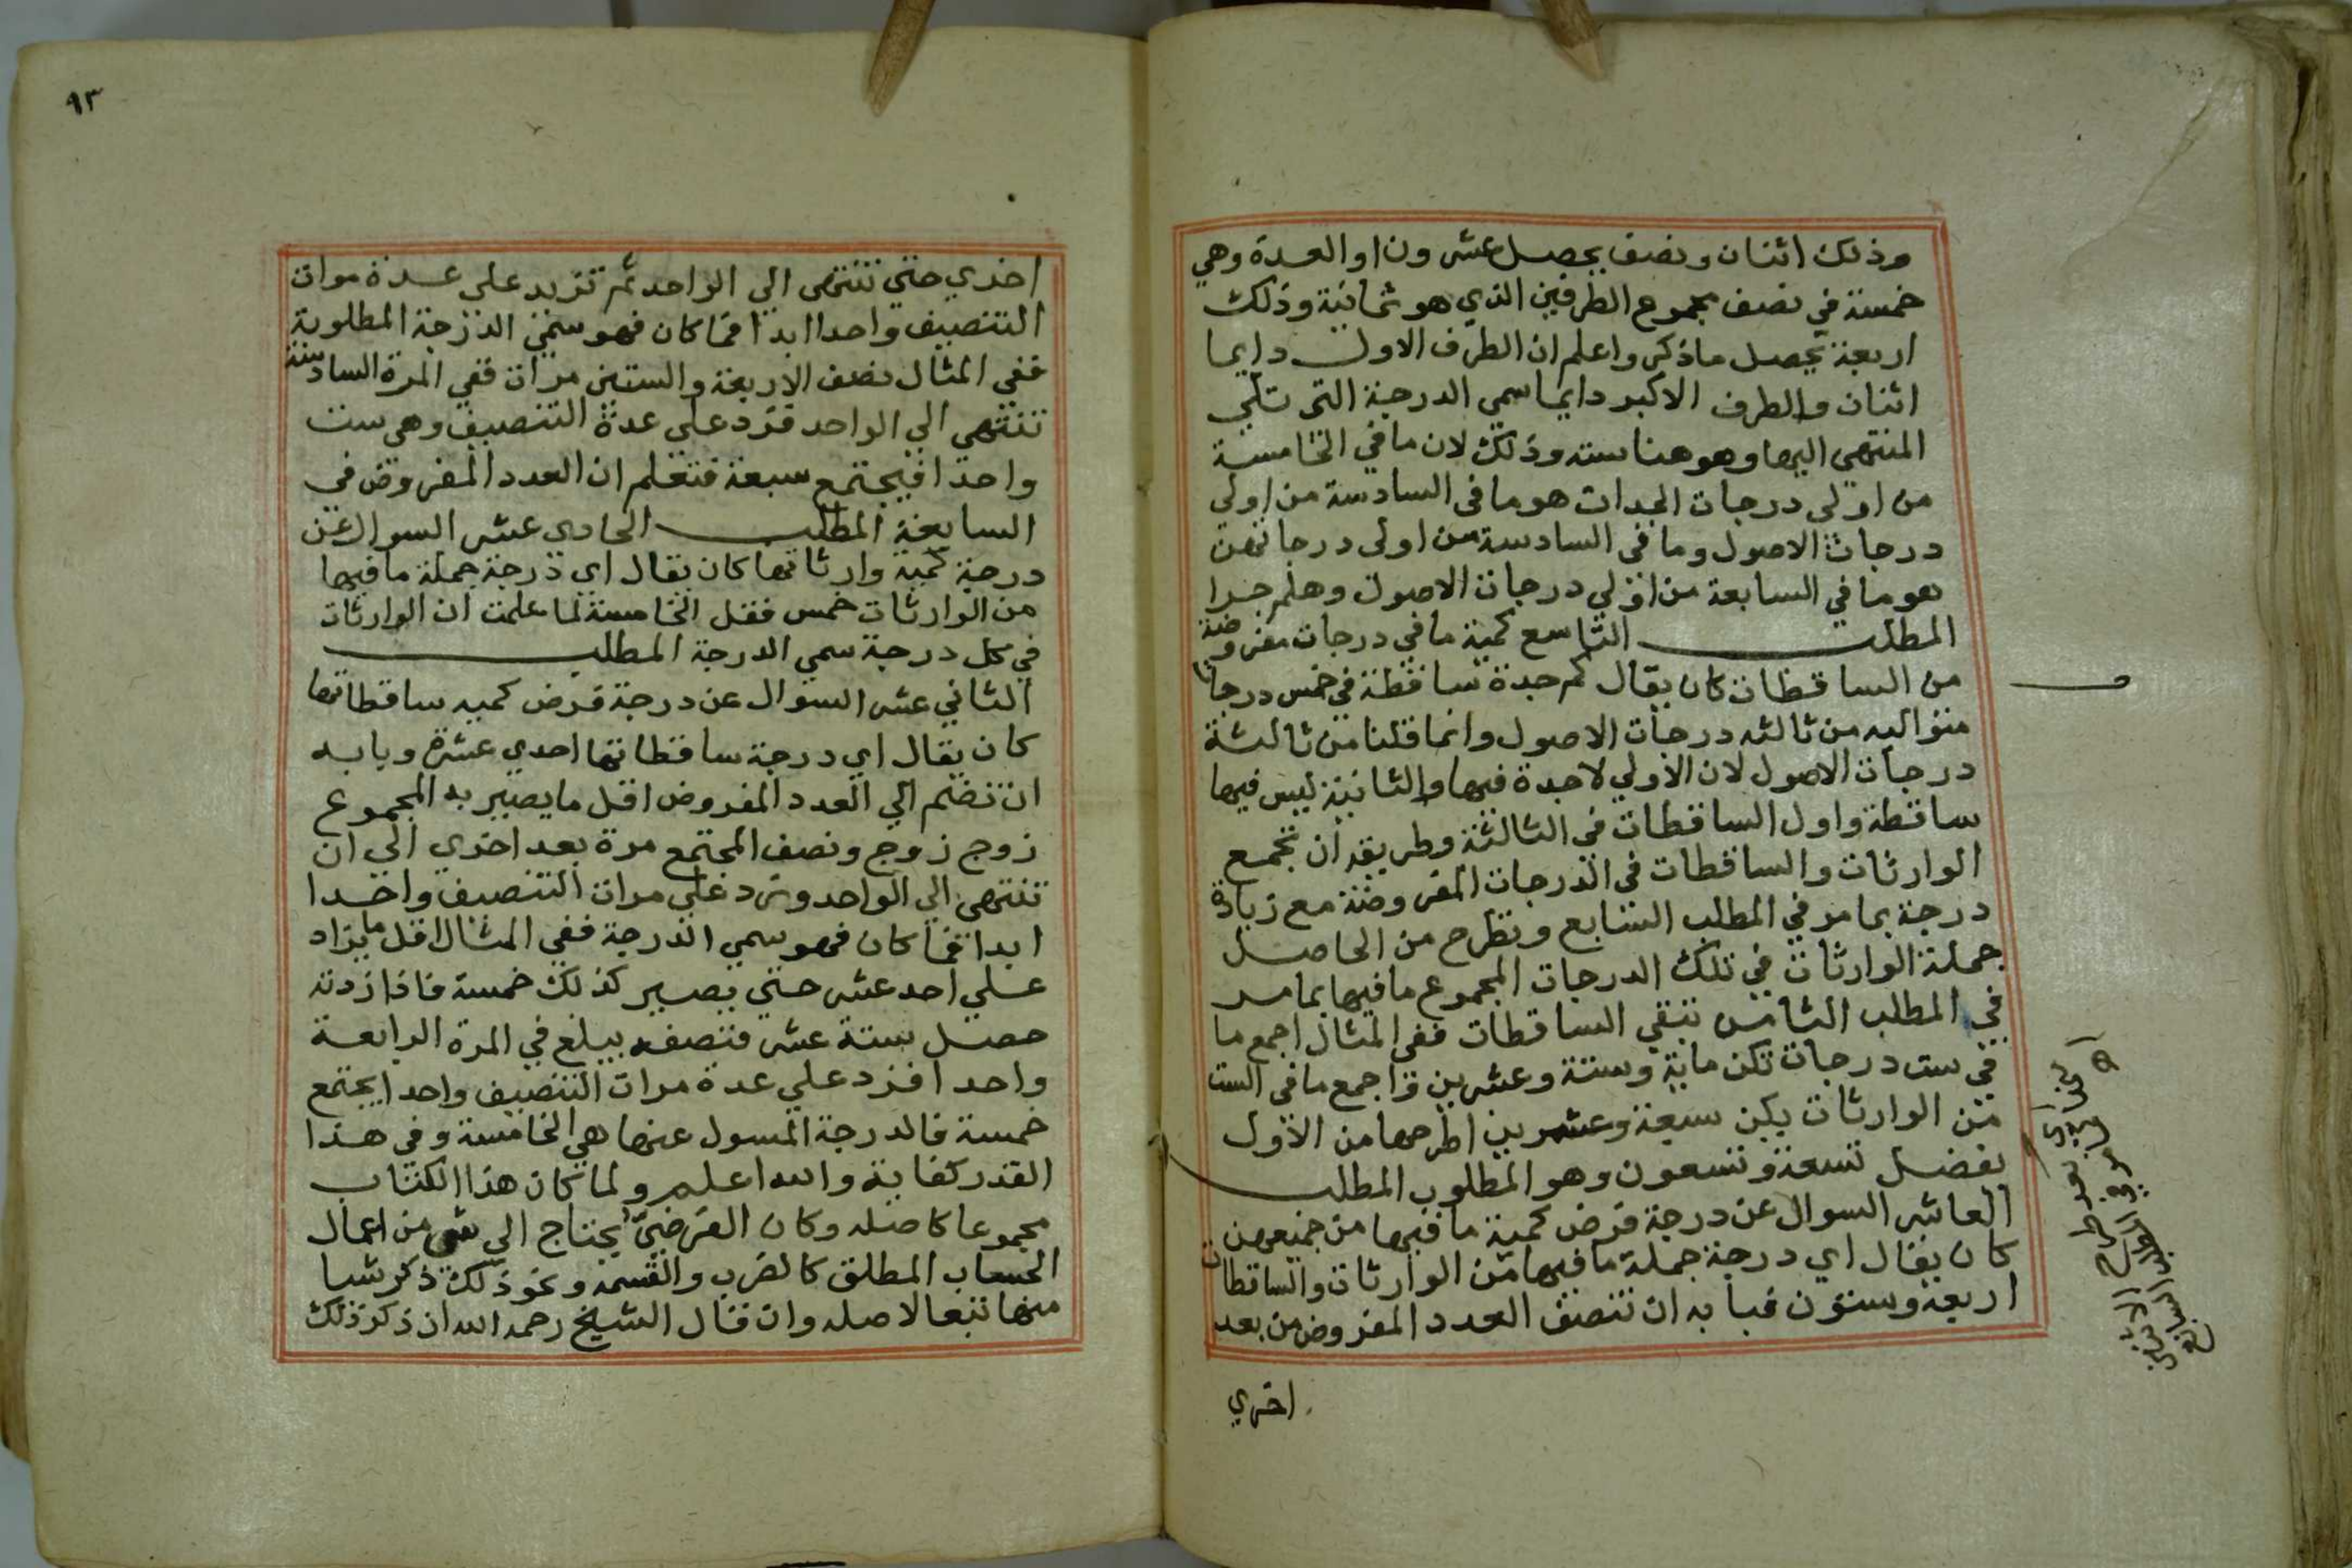 وذلك اثنان ونصف يحصل عشرون او العدة وهي
خمسة في نصف مجموع الطرفين الذي هو ثمانية وذلك
اربعة يحصل ما ذكر واعلم ان الطرف الاول دايما
اثنان والطرف الاكبر دايما سمي الدرجة التي تلي
المنتهي اليها وهو هنا ستة وذلك لان ما في الخامسة
من اولي درجات الجدات هو ما في السادسة من اولي
درجات الاصول وما في السادسة من اولي درجاتهن
هو ما في السابعة من اولي درجات الاصول وهلم جرا
المطلب التاسع كمية ما في درجات مفروضة
من الساقطات كان يقال كم جدة ساقطة في خمس درجات
متواليه من ثالثه درجات الاصول وانما قلنا من ثالثة
درجات الاصول لان الاولي لا جدة فيها والثانية ليس فيها
ساقطة واول الساقطات في الثالثة وطريقه ان تجمع
الوارثات والساقطات في الدرجات المفروضة مع زيادة
درجة بما مر في المطلب السابع وتطرح من الحاصل
جملة الوارثات في تلك الدرجات المجموع ما فيها بما مر
في المطلب الثامن تبقي الساقطات ففي المثال اجمع ما
في ست درجات تكن ماية وستة وعشرين واجمع ما في الست
من الوارثات يكن سبعة وعشرين اطرحها من الاول
يفضل تسعة وتسعون وهو المطلوب المطلب
العاشر السوال عن درجة فرض كمية ما فيها من جميعهن
كان يقال اي درجة جملة ما فيها من الوارثات والساقطات
اربعة وستون فبابه ان تنصف العدد المفروض من بعد
اخري
٩٣
اخري حتي تنتهي الي الواحد ثم تزيد علي عدة مرات
التنصيف واحدا ابدا فما كان فهو سمي الدرجة المطلوبة
ففي المثال نصف الاربعة والستين مرات ففي المرة السادسة
تنتهي الي الواحد فزد علي عدة التنصيف وهي ست
واحدا فيجتمع سبعة فتعلم ان العدد المفروض في
السابعة المطلب الحادي عشر السوال عن
درجة كمية وارثاتها كان يقال اي درجة جملة ما فيها
من الوارثات خمس فقل الخامسة لما علمت ان الوارثات
في كل درجة سمي الدرجة المطلب
الثاني عشر السوال عن درجة فرض كميه ساقطاتها
كان يقال اي درجة ساقطاتها احدي عشرة وبابه
ان تضم الي العدد المفروض اقل ما يصير به المجموع
زوج زوج ونصف المجتمع مرة بعد اخري الي ان
تنتهي الي الواحد وزد علي مرات التنصيف واحدا
ابدا فما كان فهو سمي الدرجة ففي المثال اقل ما يزاد
علي احد عشر حتي يصير كذلك خمسة فاذا زدته
حصل ستة عشر فتنصفه يبلغ في المرة الرابعة
واحدا فزد علي عدة مرات التنصيف واحدا يجتمع
خمسة فالدرجة المسول عنها هي الخامسة وفي هذا
القدر كفاية والله اعلم ولما كان هذا الكتاب
مجموعا كاصله وكان الفرضي يحتاج الي شي من اعمال
الحساب المطلق كالضرب والقسمه ونحو ذلك ذكر شيا
منها تبعا لاصله وان قال الشيخ رحمه الله ان ذكر ذلك